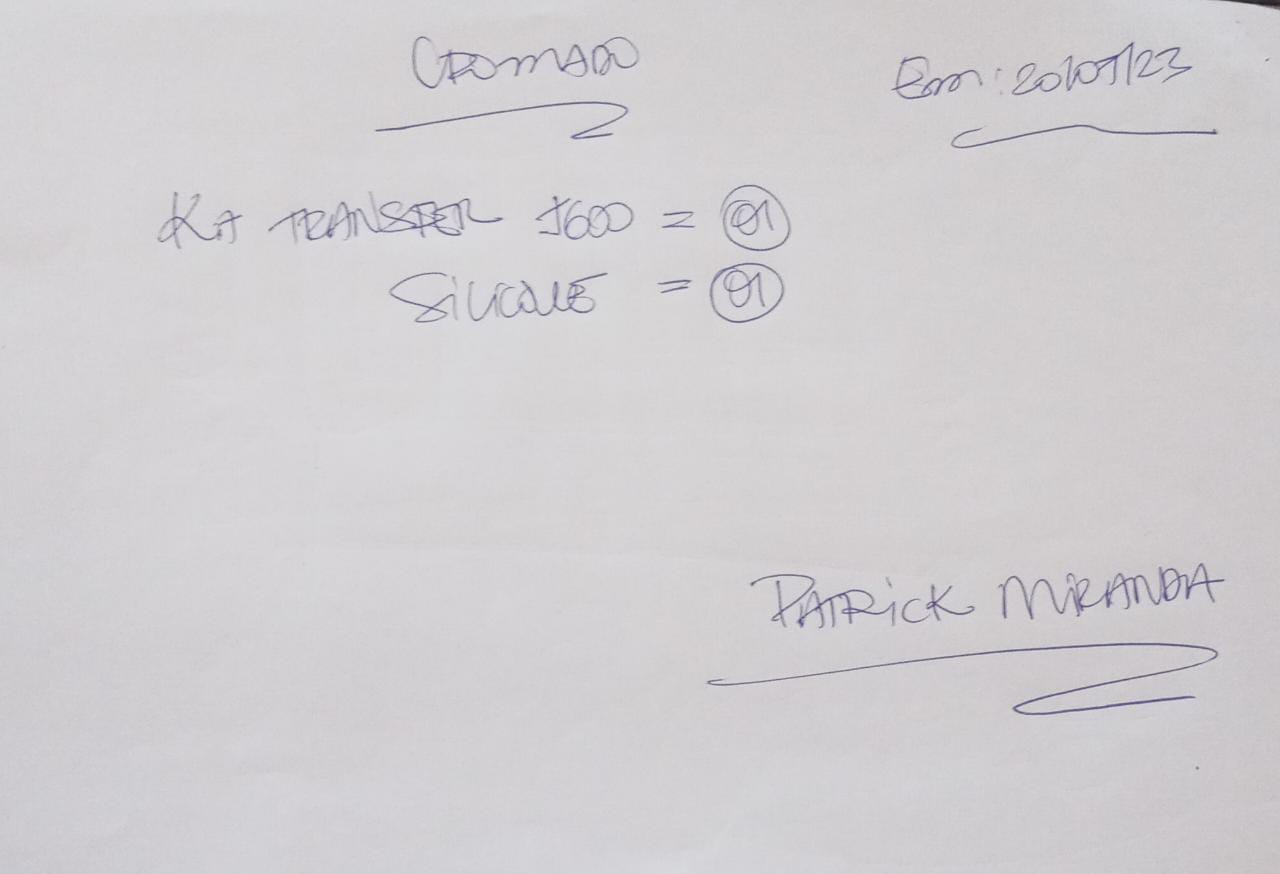 CROMADO
Em: 20/09/23
Kit TRANSFER J600 = 01
SILICONE = 01
PATRICK MIRANDA